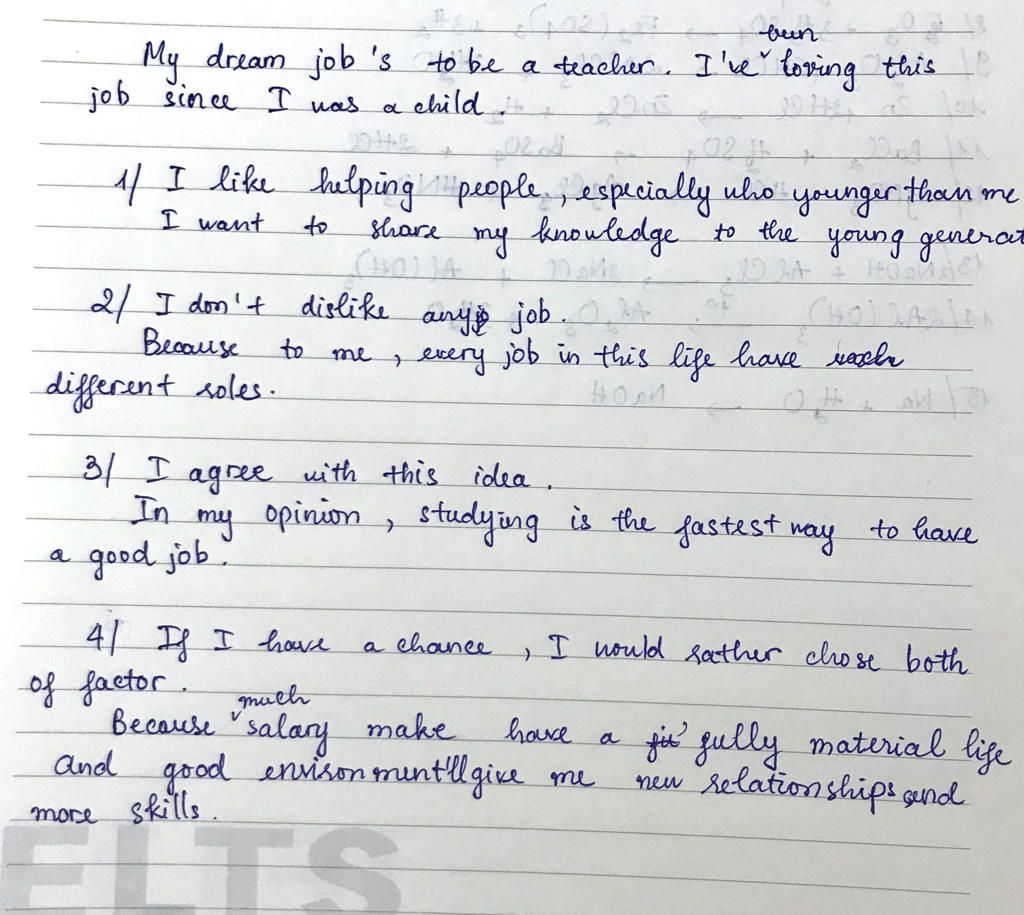 been
My dream job's to be a teacher. I've ˅ loving this
job since I was a child.
1/ I like helping people, especially who younger than me
I want to share my knowledge to the young generat
2/ I don't dislike any job.
Because to me, every job in this life have
different roles.
3/ I agree with this idea.
In my opinion, studying is the fastest way to have
a good job.
4/ If I have a chance, I would rather chose both
of factor.
much
Because ˅ salary make have a fully material life
and good environment'll give me new relationships and
more skills.
ELTS